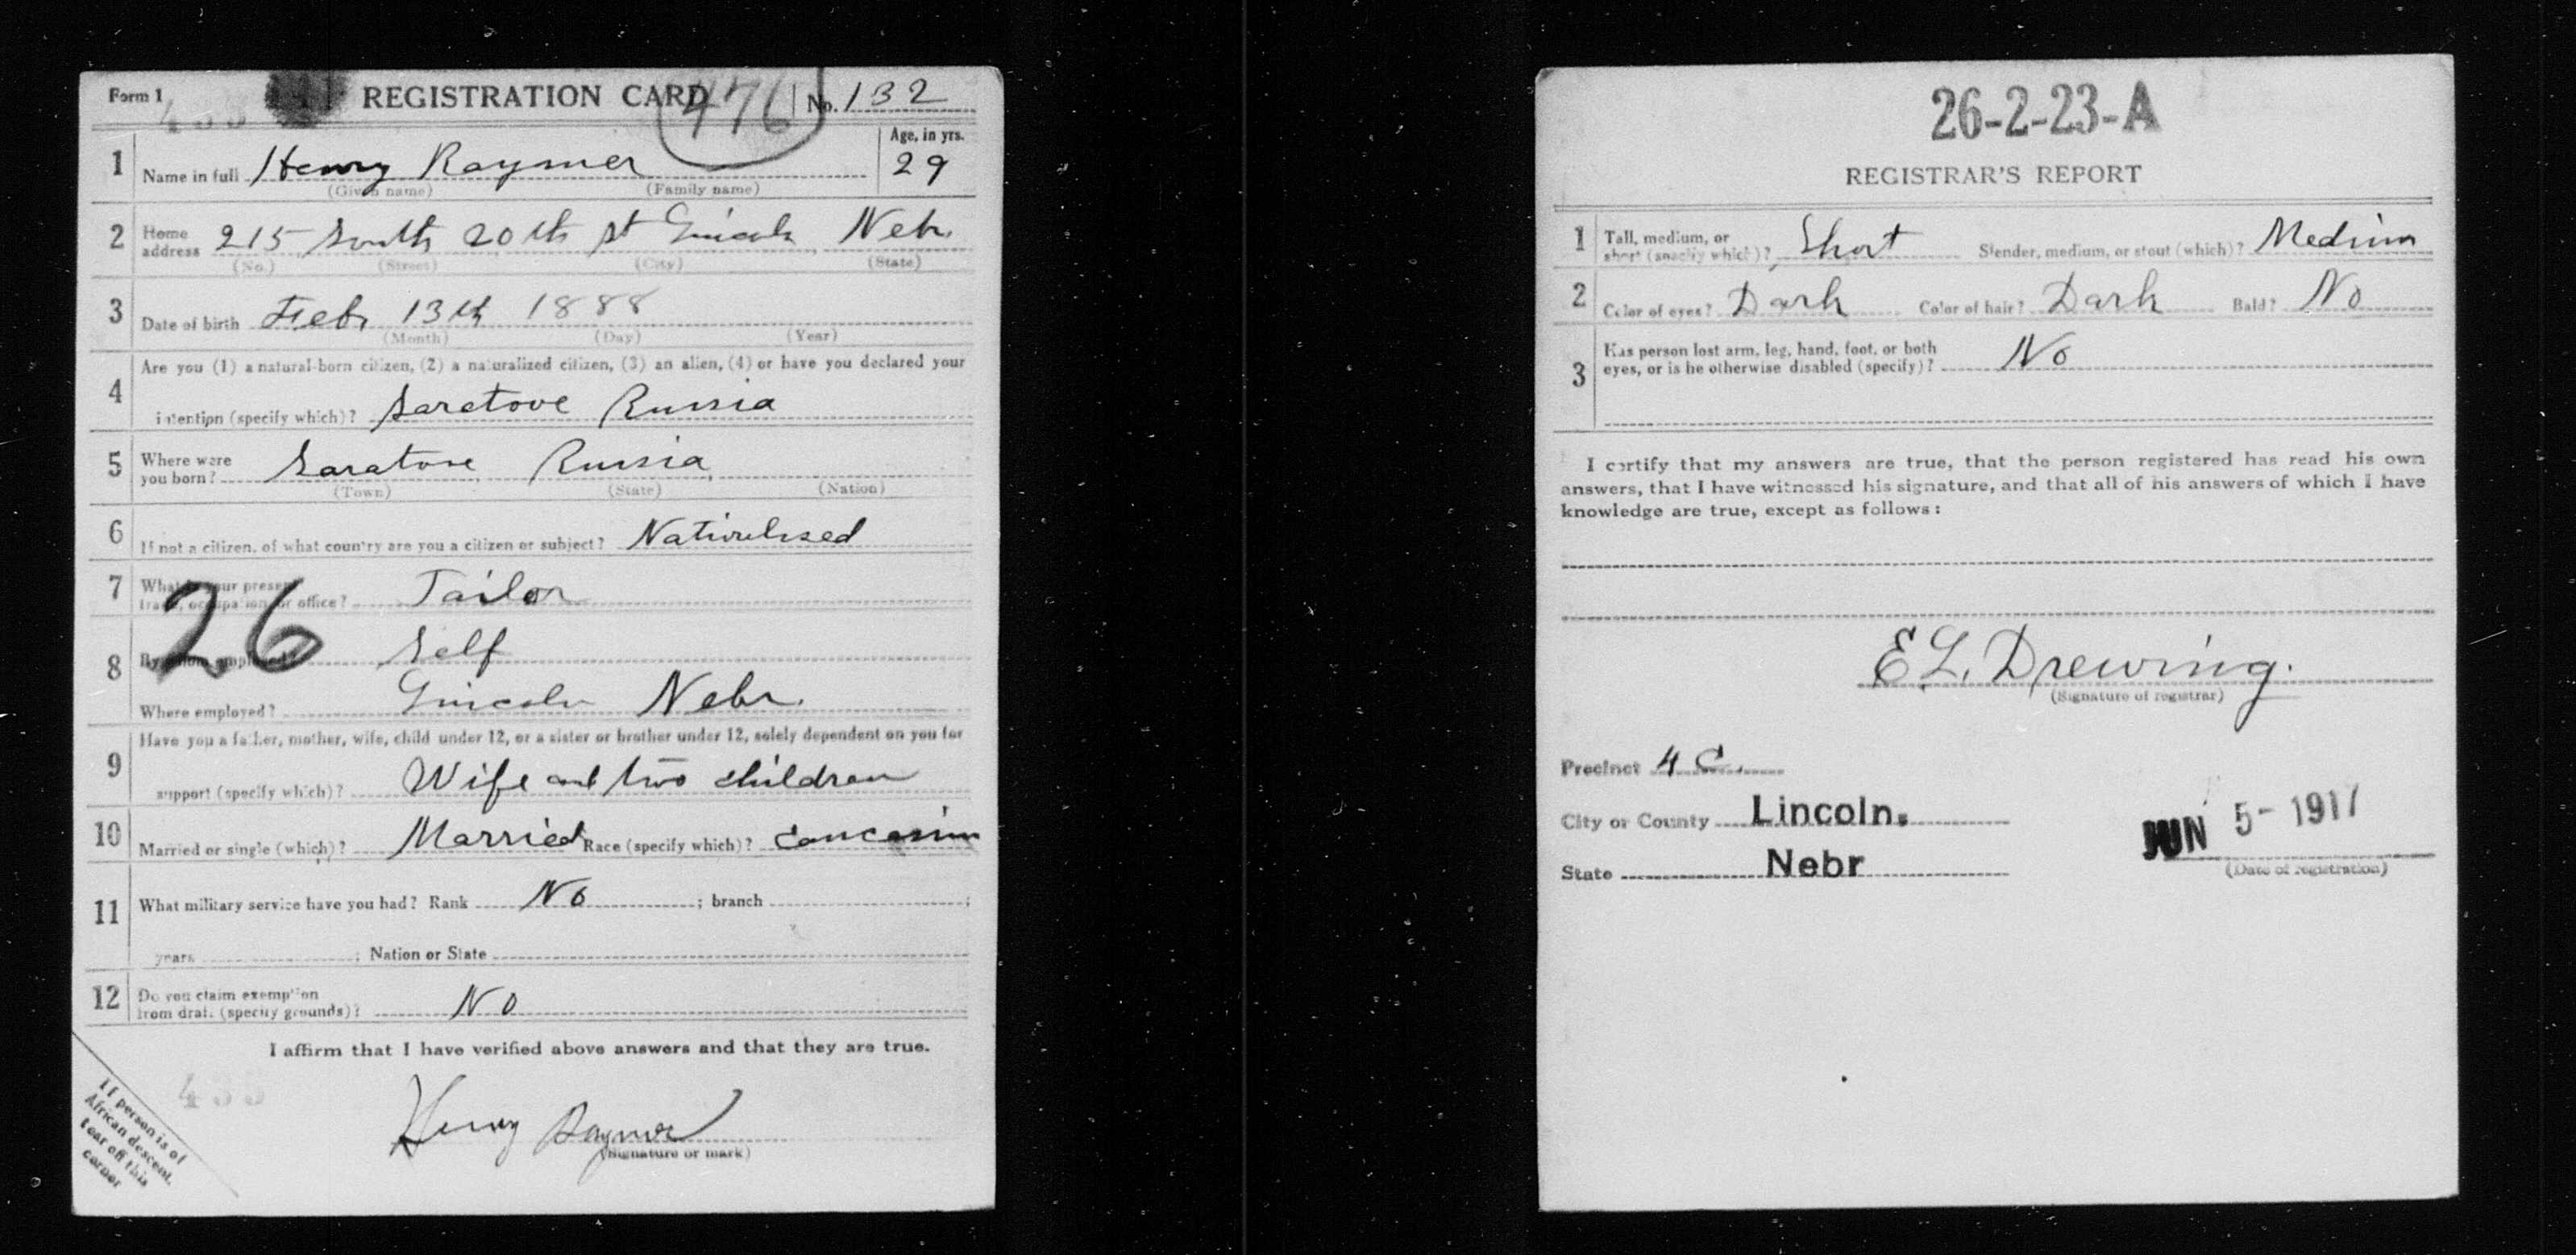 Form 1 REGISTRATION CARD 476 No. 132
435
1 Name in full Henry Raymer Age, in yrs. 29
(Given name) (Family name)
2 Home address 215 South 20th st Lincoln Nebr.
(No.) (Street) (City) (State)
3 Date of birth Feb. 13th 1888
(Month) (Day) (Year)
4 Are you (1) a natural-born citizen, (2) a naturalized citizen, (3) an alien, (4) or have you declared your
intention (specify which)? Saretove Russia
5 Where were you born? Saratove Russia
(Town) (State) (Nation)
6 If not a citizen, of what country are you a citizen or subject?
7 What is your present trade, occupation, or office? Tailor
26
8 By whom employed? Self
Where employed? Lincoln Nebr.
9 Have you a father, mother, wife, child under 12, or a sister or brother under 12, solely dependent on you for
support (specify which)? Wife and two children
10 Married or single (which)? Married Race (specify which)? Caucasian
11 What military service have you had? Rank No ; branch ;
years ; Nation or State
12 Do you claim exemption from draft (specify grounds)? No
I affirm that I have verified above answers and that they are true.
435
Henry Raymer
(Signature or mark)
If person is of
African descent,
tear off this
corner
26-2-23-A
REGISTRAR'S REPORT
1 Tall, medium, or short (specify which)? Short Slender, medium, or stout (which)? Medium
2 Color of eyes? Dark Color of hair? Dark Bald? No
3 Has person lost arm, leg, hand, foot, or both
eyes, or is he otherwise disabled (specify)? No
I certify that my answers are true, that the person registered has read his own
answers, that I have witnessed his signature, and that all of his answers of which I have
knowledge are true, except as follows:
E L. Drewing.
(Signature of registrar)
Precinct 4 C.
City or County Lincoln. JUN 5- 1917
State Nebr (Date of registration)